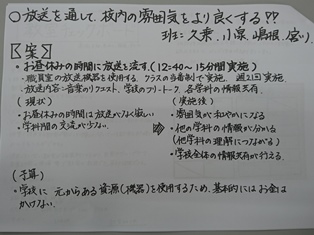 ○放送を通して、校内の雰囲気をより良くする??
班:久乗、小涼、嶋根、
【案】
・お昼休みの時間に放送を流す。(12:40〜15分間実施)
・職員室の放送機器を使用する。クラスの当番制で実施。週2回実施。
・放送内容:音楽のリクエスト、学校のフリートーク、各学科の情報共有。
(現状)
・お昼休みの時間には放送がなく寂しい
・学科間の交流が少ない。
(実施後)
・雰囲気が和やかになる
・他の学科の情報が分かる
(他の学科の理解につながる)
・学校全体の情報共有が行える。
(予算)
・学校に元からある資源(機器)を使用するため、基本的にはお金は
かけない。